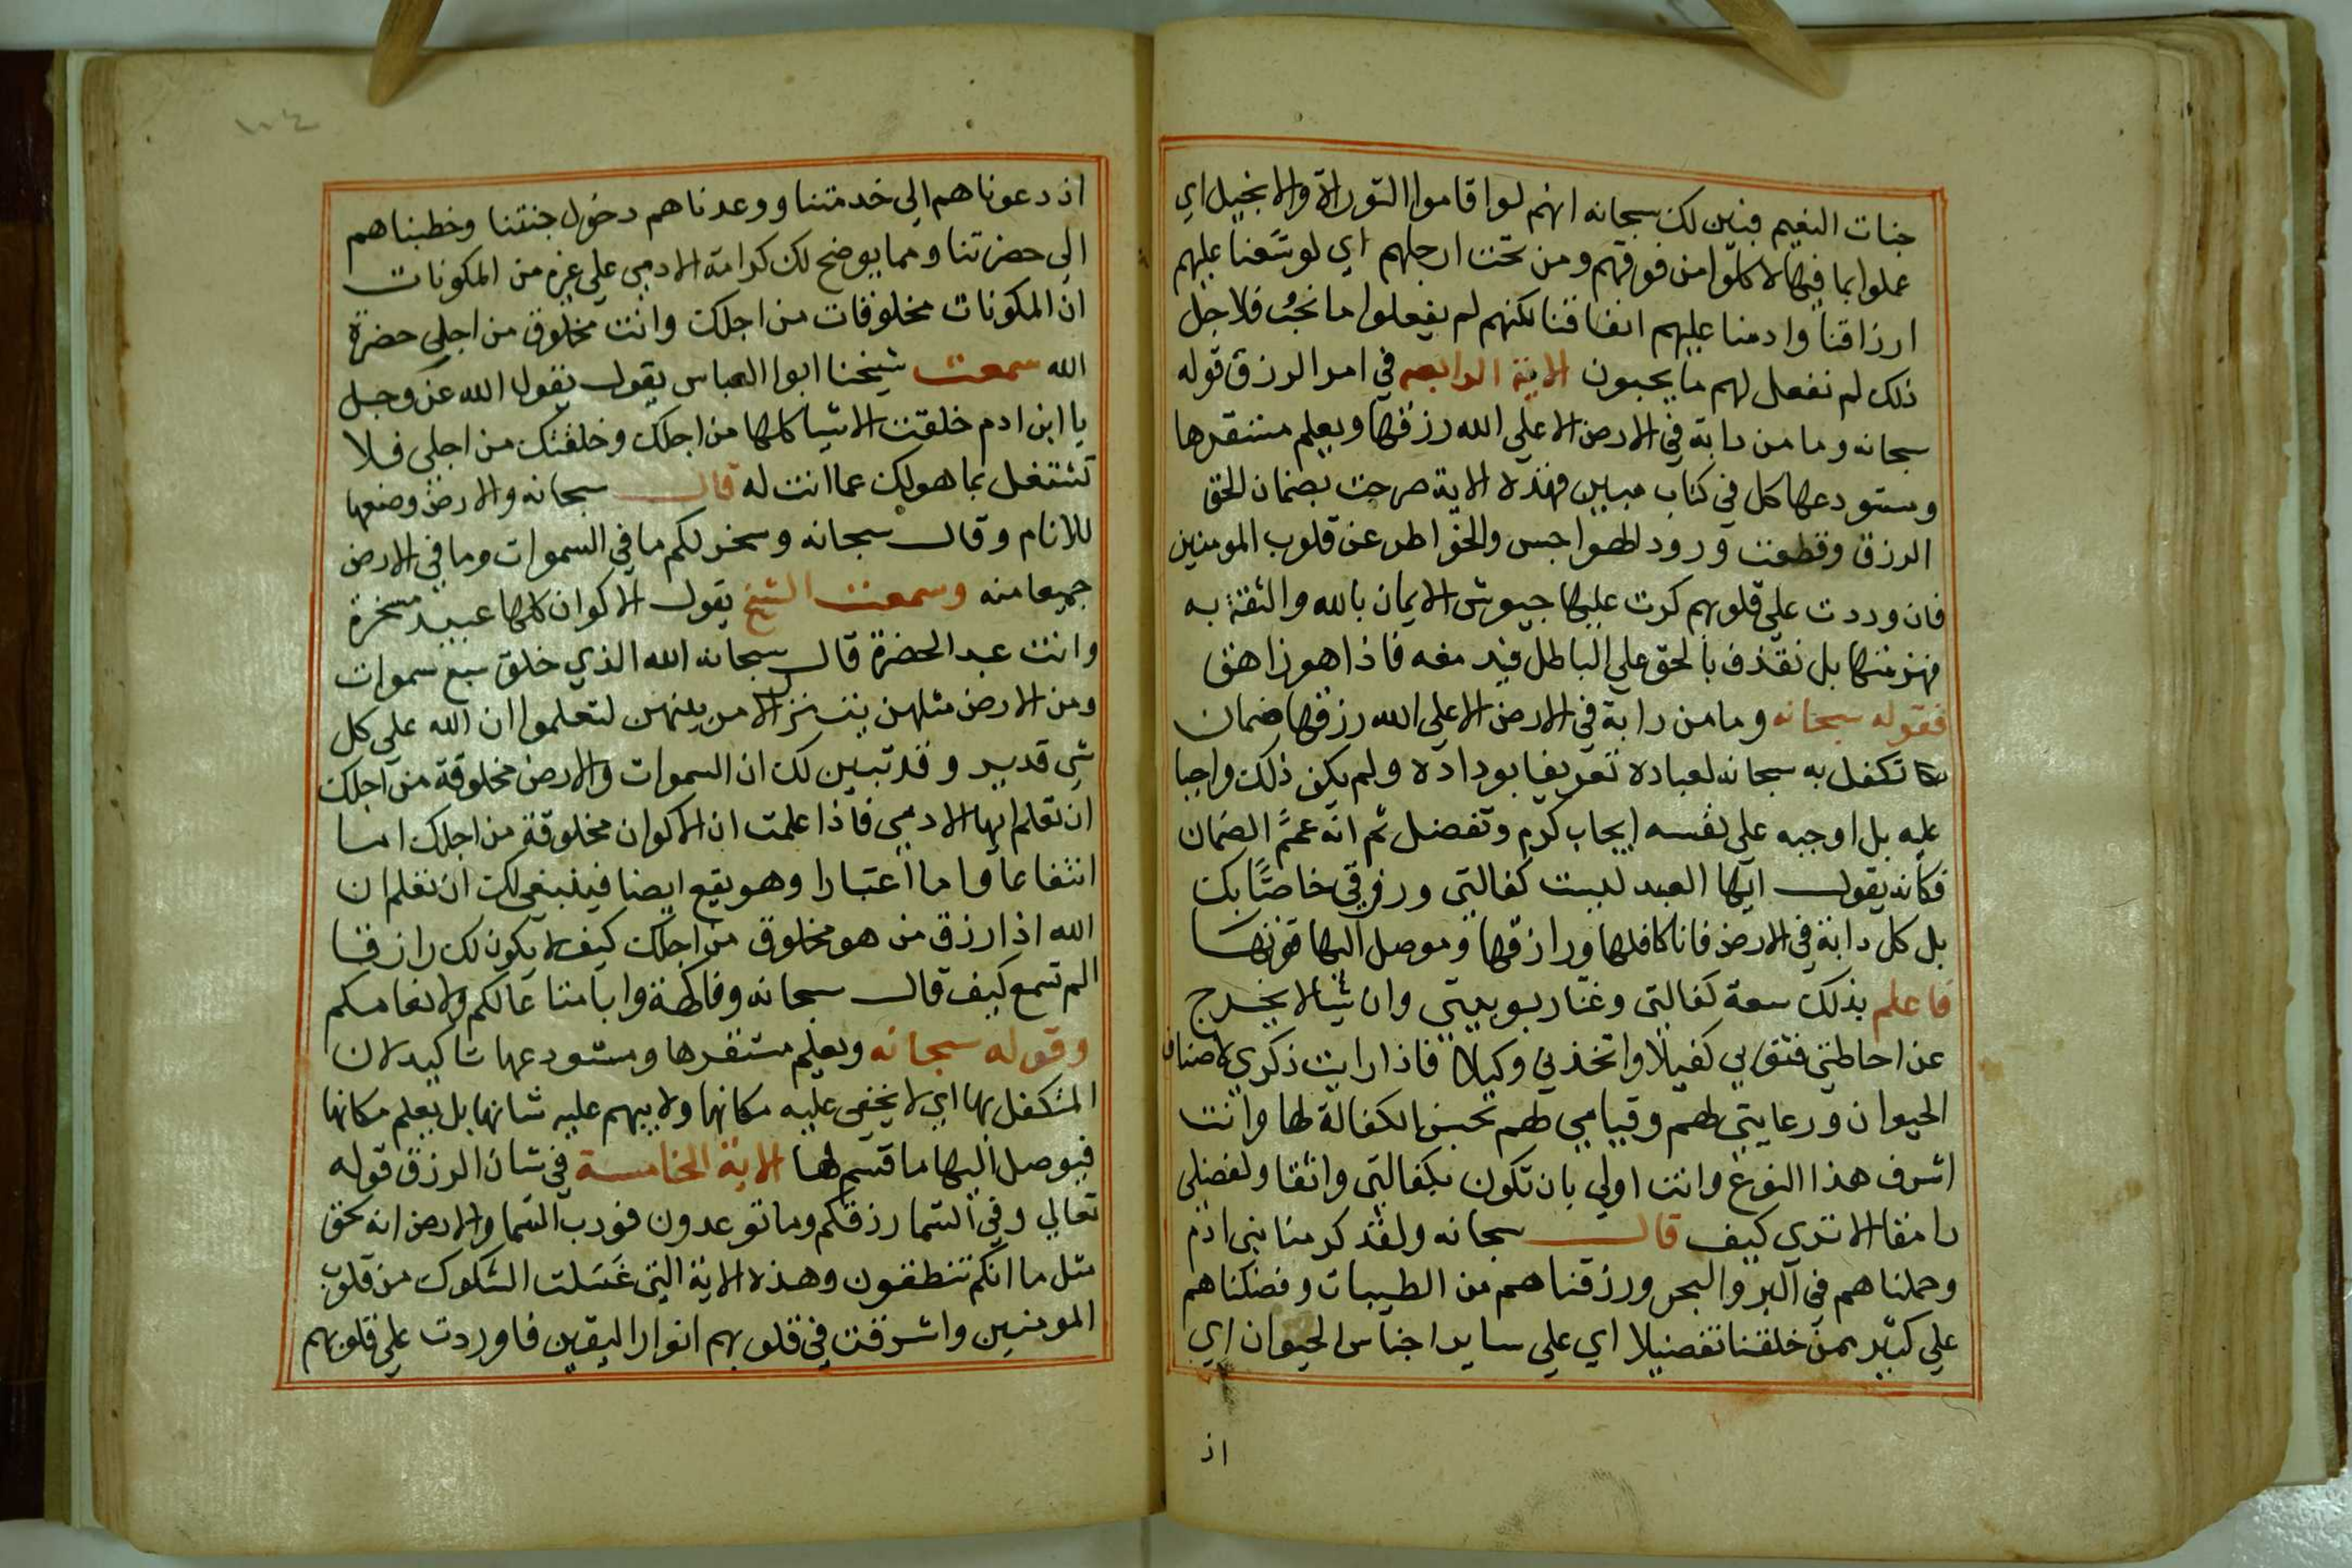 جنات النعيم فبين لك سبحانه انهم لو اقاموا التوراة والانجيل اي
عملوا بما فيها لاكلوا من فوقهم ومن تحت ارجلهم اي لوسّعنا عليهم
ارزاقنا وادمنا عليهم انفاقنا لكنهم لم يفعلوا ما نحبُ فلاجل
ذلك لم نفعل لهم ما يحبون الاية الرابعه في امر الرزق قوله
سبحانه وما من دابة في الارض الا علي الله رزقها ويعلم مستقرها
ومستودعها كل في كتاب مبين فهذه الاية صرحت بضمان الحق
الرزق وقطعت ورود الهواجس والخواطر عن قلوب المومنين
فان وردت علي قلوبهم كرت عليها جيوش الايمان بالله والثقة به
فهزمتها بل نقذف بالحق علي الباطل فيدمغه فاذا هو زاهق
فقوله سبحانه وما من دابة في الارض الا علي الله رزقها ضمان
تكفل به سبحانه لعباده تعريفا بوداده ولم يكن ذلك واجبا
عليه بل اوجبه على نفسه ايجاب كرم وتفضل ثم انه عمّم الضمان
فكأنه يقول ايها العبد ليست كفالتي ورزقي خاصًّا بك
بل كل دابة في الارض فانا كافلها ورازقها وموصل اليها قوتها
فاعلم بذلك سعة كفالتي وغنا ربوبيتي وان شيأ لا يخرج
عن احاطتي فثق بي كفيلًا واتخذني وكيلا فاذا رايت ذكري لاصناف
الحيوان ورعايتي لهم وقيامي لهم بحسن الكفالة لها وانت
اشرف هذا النوع وانت اولي بان تكون بكفالتي واثقا ولفضلي
رامقا الا تري كيف قال سبحانه ولقد كرمنا بني ادم
وحملناهم في البر والبحر ورزقناهم من الطيبات وفضلناهم
علي كثير ممن خلقنا تفضيلا اي علي ساير اجناس الحيوان اي
اذ
١٠٤
اذ دعوناهم الي خدمتنا ووعدناهم دخول جنتنا وخطبناهم
الي حضرتنا ومما يوضح لك كرامة الادمي علي غيره من المكونات
ان المكونات مخلوقات من اجلك وانت مخلوق من اجلي حضرة
الله سمعت شيخنا ابوا العباس يقول يقول الله عز وجل
يا ابن ادم خلقت الاشيا كلها من اجلك وخلقتك من اجلي فلا
تشتغل بما هو لك عما انت له قال سبحانه والارض وضعها
للانام وقال سبحانه وسخر لكم ما في السموات وما في الارض
جميعا منه وسمعت الشيخ يقول الاكوان كلها عبيد مسخرة
وانت عبد الحضرة قال سبحانه الله الذي خلق سبع سموات
ومن الارض مثلهن يتنزل الامر بينهن لتعلموا ان الله علي كل
شي قدير وقد تبين لك ان السموات والارض مخلوقة من اجلك
ان تعلم ايها الادمي فاذا علمت ان الاكوان مخلوقة من اجلك اما
انتفاعا واما اعتبارا وهو يقع ايضا فينبغي لك ان تعلم ان
الله اذا رزق من هو مخلوق من اجلك كيف لا يكون لك رازقا
الم تسمع كيف قال سبحانه وفاكهة وابا متاعا لكم ولانعامكم
وقوله سبحانه ويعلم مستقرها ومستودعها تاكيد لان
المتكفل بها اي لا يخفي عليه مكانها ولا يبهم عليه شانها بل يعلم مكانها
فيوصل اليها ما قسم لها الاية الخامسة في شان الرزق قوله
تعالي وفي السما رزقكم وما توعدون فورب السما والارض انه لحق
مثل ما انكم تنطقون وهذه الاية التي غَسَلت الشكوك من قلوب
المومنين واشرقت في قلوبهم انوار اليقين فاوردت علي قلوبهم